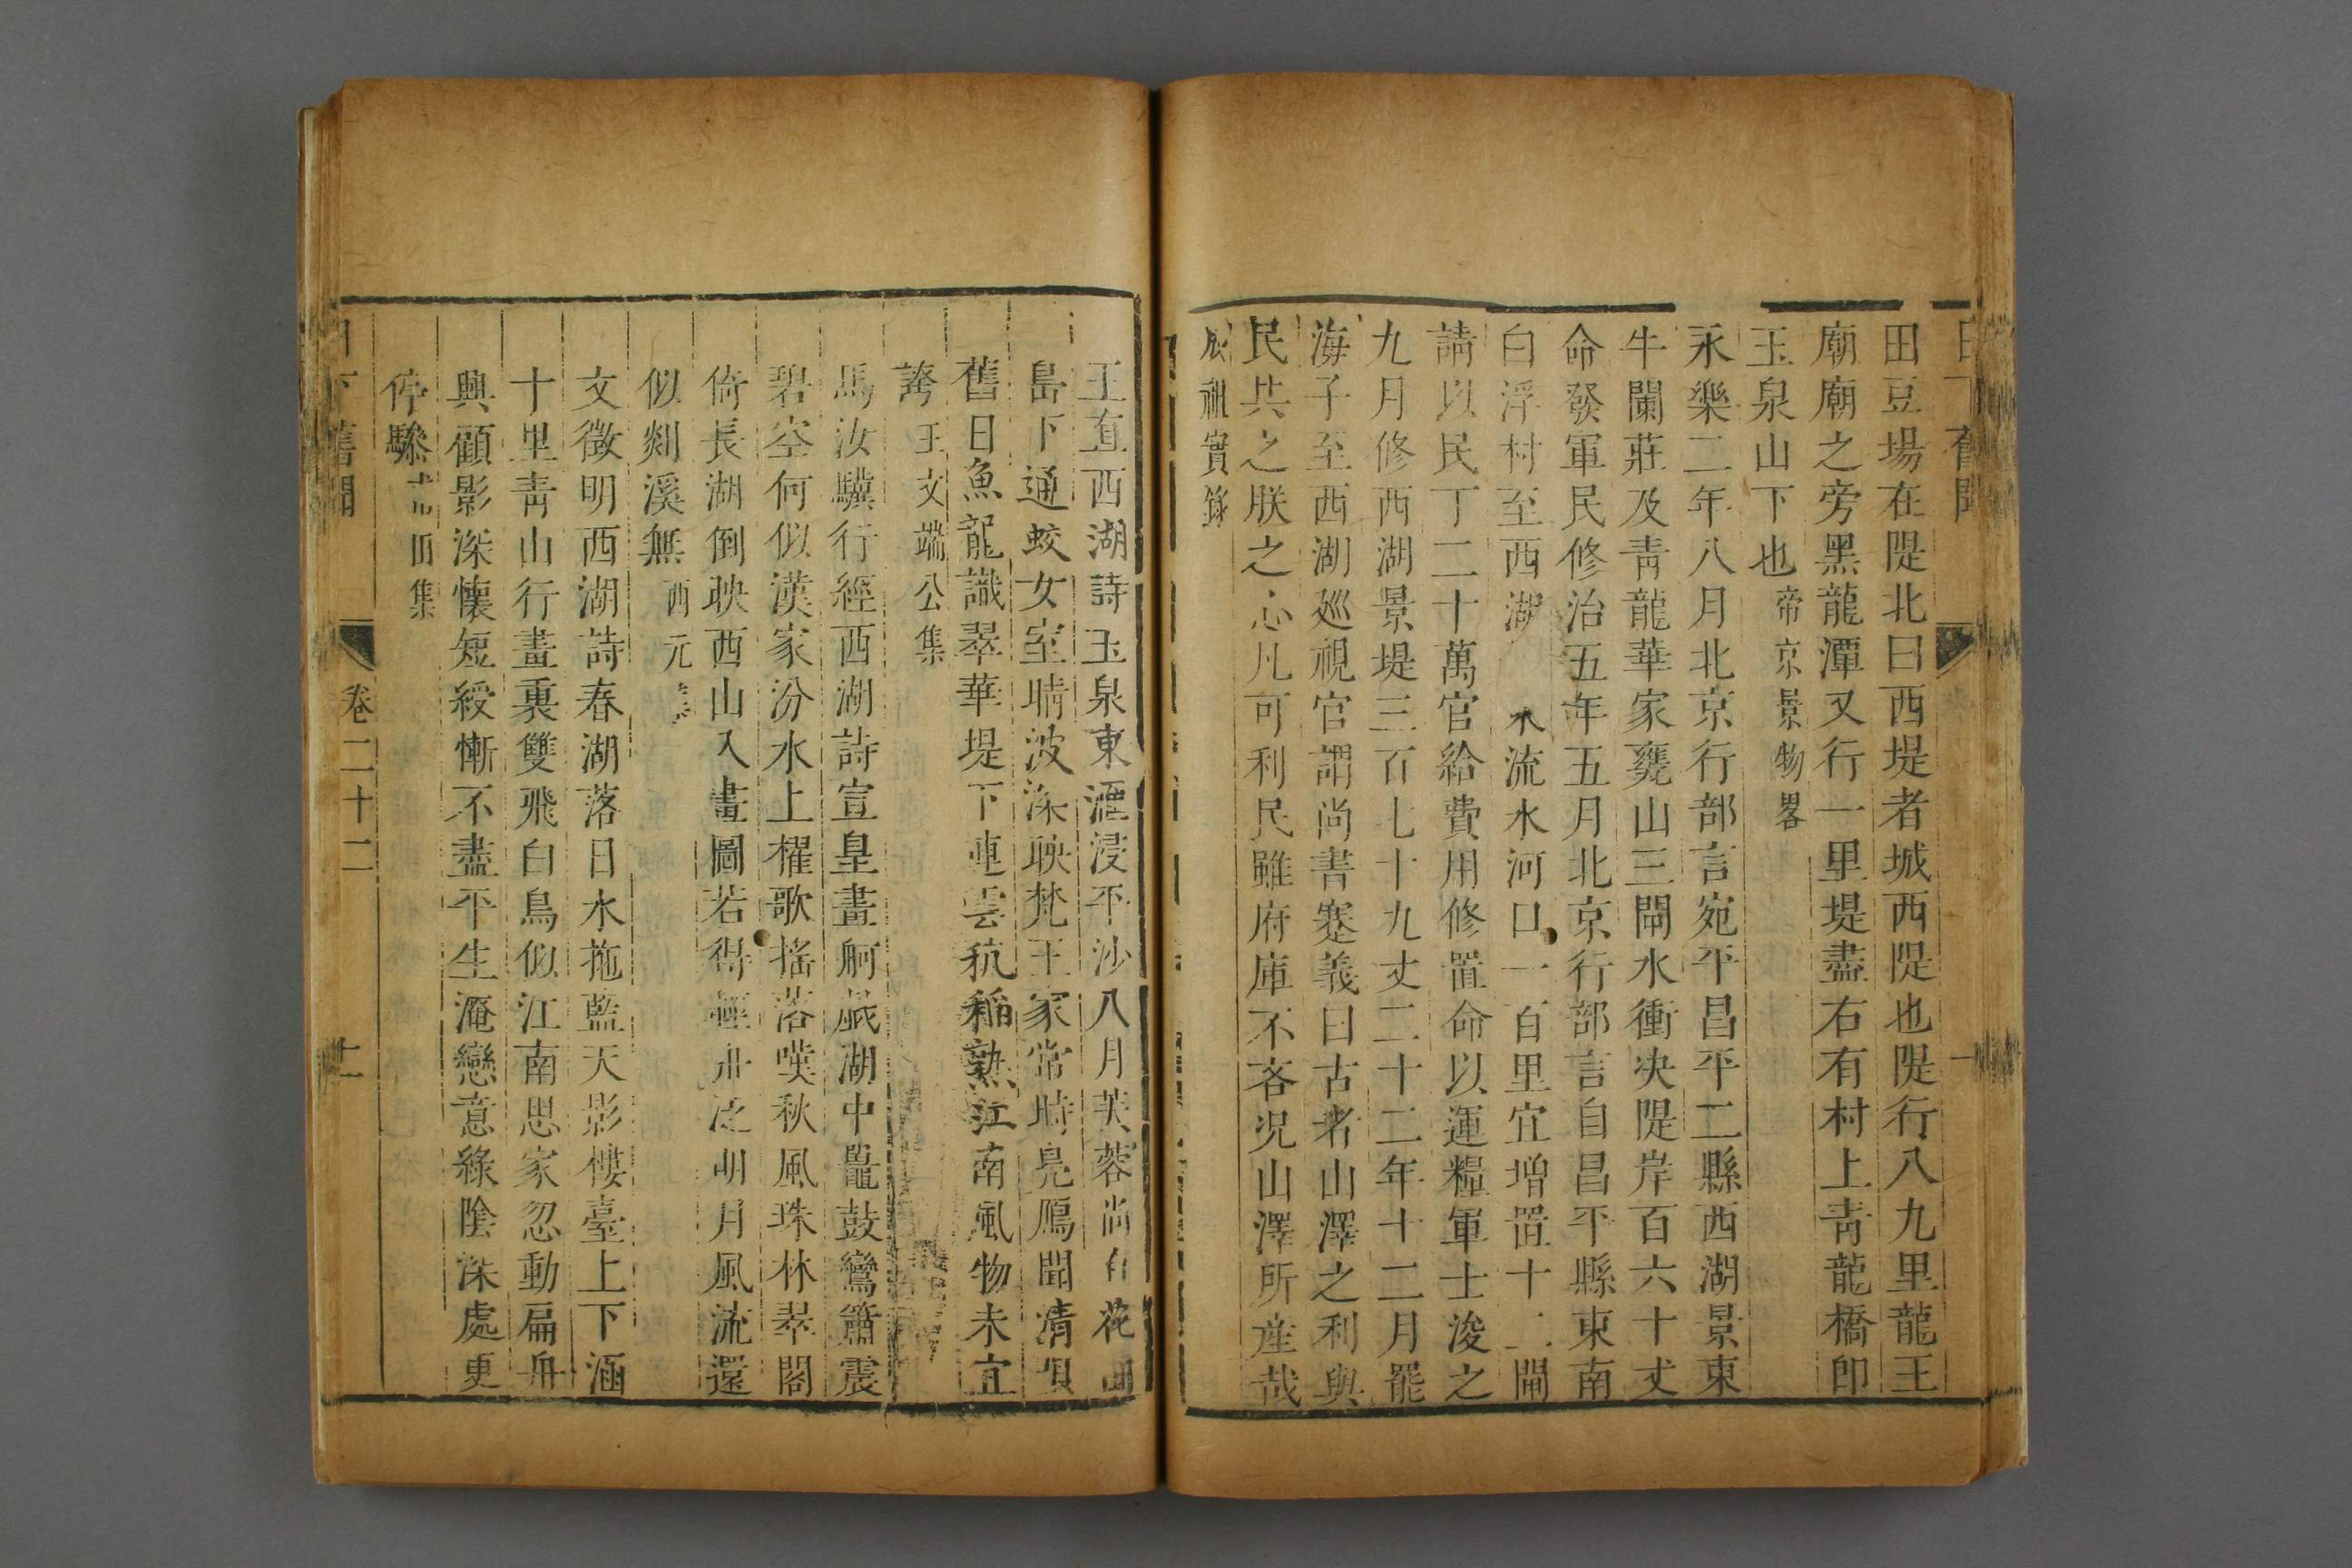 日下舊聞
田豆場在隄北曰西堤者城西隄也隄行八九里龍王
廟廟之旁黑龍潭又行一里堤盡右有村上靑龍橋卽
玉泉山下也帝京景物畧
永樂二年八月北京行部言宛平昌平二縣西湖景東
牛闌莊及靑龍華家甕山三閘水衝决隄岸百六十丈
命發軍民修治五年五月北京行部言自昌平縣東南
白浮村至西湖 水流水河口一百里宜增置十二閘
請以民丁二十萬官給費用修置命以運糧軍士浚之
九月修西湖景堤三百七十九丈二十二年十二月罷
海子至西湖巡視官謂尚書蹇義曰古者山澤之利與
民共之朕之心凡可利民雖府庫不吝况山澤所產哉
祖實錄
王直西湖詩玉泉東滙浸平沙八月芙蓉尚有花曲
島下通蛟女室晴波深映梵王家常時鳧鴈聞清唄
舊日魚龍識翠華堤下連雲秔稻熟江南風物未宜
誇王文端公集
馬汝驥行經西湖詩宣皇畫舸戲湖中鼉鼓鸞簫震
碧空何似漢家汾水上櫂歌搖落嘆秋風珠林翠閣
倚長湖倒映西山入畫圖若得輕舟泛明月風流還
似剡溪無西元
文徵明西湖詩春湖落日水拖藍天影樓臺上下涵
十里靑山行畫裏雙飛白鳥似江南思家忽動扁舟
興顧影深懷短綬慚不盡平生淹戀意綠陰深處更
停驂甫田集
日下舊聞 卷二十二 十一